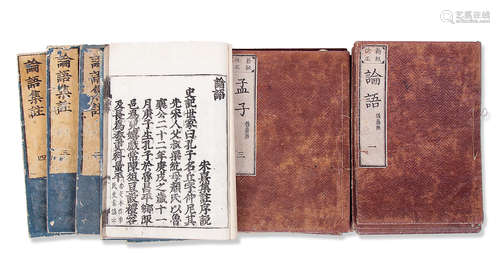 論語
一
孟子
三
論語
朱熹集註序說
史記世家曰孔子名丘字仲尼其
先宋人父叔梁紇母顏氏以魯
襄公二十二年庚戌之歲十一
月庚子生孔子於魯昌平鄉陬
邑為兒嬉戲常陳俎豆設禮容
及長為委吏料量平
論語集註
三
論語集註
四